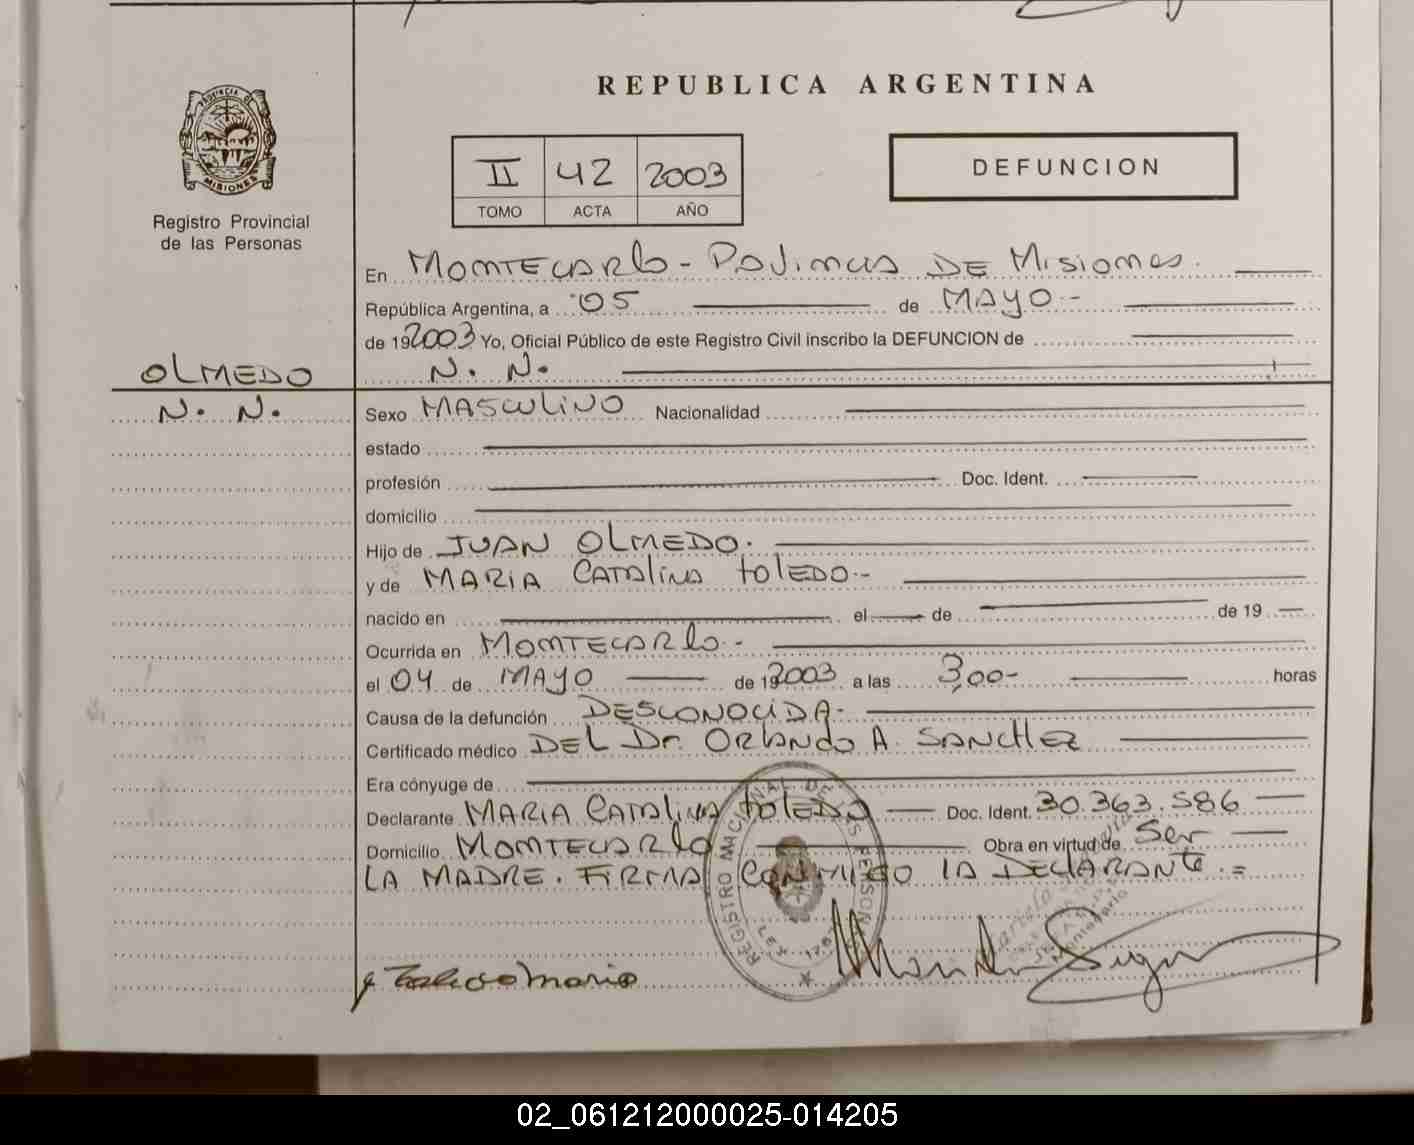 REPUBLICA ARGENTINA
PROVINCIA DE MISIONES
Registro Provincial
de las Personas
II 42 2003
TOMO ACTA AÑO
DEFUNCION
En MONTECARLO - PROVINCIA DE MISIONES.
República Argentina, a 05 de MAYO.-
de 192003 Yo, Oficial Público de este Registro Civil inscribo la DEFUNCION de
OLMEDO
N. N.
N. N.
Sexo MASCULINO Nacionalidad
estado
profesión Doc. Ident.
domicilio
Hijo de JUAN OLMEDO.
y de MARIA CATALINA TOLEDO.-
nacido en el de de 19
Ocurrida en MONTECARLO.-
el 04 de MAYO de 192003 a las 3,00- horas
Causa de la defunción DESCONOCIDA.-
Certificado médico DEL Dr. ORLANDO A. SANCHEZ
Era cónyuge de
Declarante MARIA CATALINA TOLEDO Doc. Ident. 30.363.586
Domicilio MONTECARLO Obra en virtud de Ser
LA MADRE. FIRMA CONMIGO LA DECLARANTE.=
REGISTRO NACIONAL DE LAS PERSONAS
Toledo Maria
02_061212000025-014205